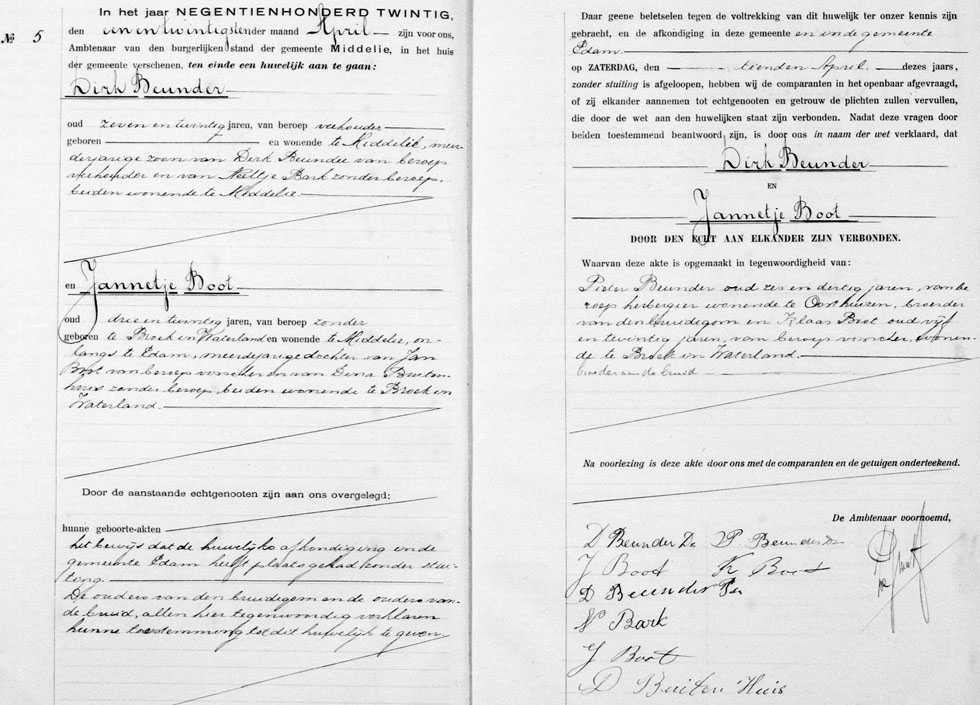 In het jaar NEGENTIENHONDERD TWINTIG,
№ 5
den een en twintigsten der maand April zijn voor ons,
Ambtenaar van den burgerlijken stand der gemeente Middelie, in het huis
der gemeente verschenen, ten einde een huwelijk aan te gaan:
Dirk Beunder
oud zeven en twintig jaren, van beroep veehouder
geboren en wonende te Middelie, meer-
derjarige zoon van Dirk Beunder van beroep
veehouder en van Neeltje Bark zonder beroep,
beiden wonende te Middelie.
en Jannetje Boot
oud drie en twintig jaren, van beroep zonder
geboren te Broek in Waterland en wonende te Middelie, on-
langs te Edam, meerderjarige dochter van Jan
Boot van beroep visscher en van Dina Buiten-
huis zonder beroep, beiden wonende te Broek in
Waterland.
Door de aanstaande echtgenooten zijn aan ons overgelegd:
hunne geboorte-akten
het bewijs dat de huwelijks afkondiging in de
gemeente Edam heeft plaats gehad zonder stui-
ting.
De ouders van den bruidegom en de ouders van
de bruid, allen hier tegenwoordig verklaren
hunne toestemming tot dit huwelijk te geven.
Daar geene beletselen tegen de voltrekking van dit huwelijk ter onzer kennis zijn
gebracht, en de afkondiging in deze gemeente en in de gemeente
Edam
op ZATERDAG, den tienden April dezes jaars,
zonder stuiting is afgeloopen, hebben wij de comparanten in het openbaar afgevraagd,
of zij elkander aannemen tot echtgenooten en getrouw de plichten zullen vervullen,
die door de wet aan den huwelijken staat zijn verbonden. Nadat deze vragen door
beiden toestemmend beantwoord zijn, is door ons in naam der wet verklaard, dat
Dirk Beunder
EN
Jannetje Boot
DOOR DEN ECHT AAN ELKANDER ZIJN VERBONDEN.
Waarvan deze akte is opgemaakt in tegenwoordigheid van:
Pieter Beunder oud zes en dertig jaren, van be
roep herbergier wonende te Oosthuizen, broeder
van den bruidegom en Klaas Boot oud vijf
en twintig jaren, van beroep visscher, wonen-
de te Broek in Waterland
broeder van de bruid
Na voorlezing is deze akte door ons met de comparanten en de getuigen onderteekend.
De Ambtenaar voornoemd,
D Beunder Dz P Beunder Dz
J Boot K Boot
D Beunder Pz
N Bark
J Boot
D Buiten Huis